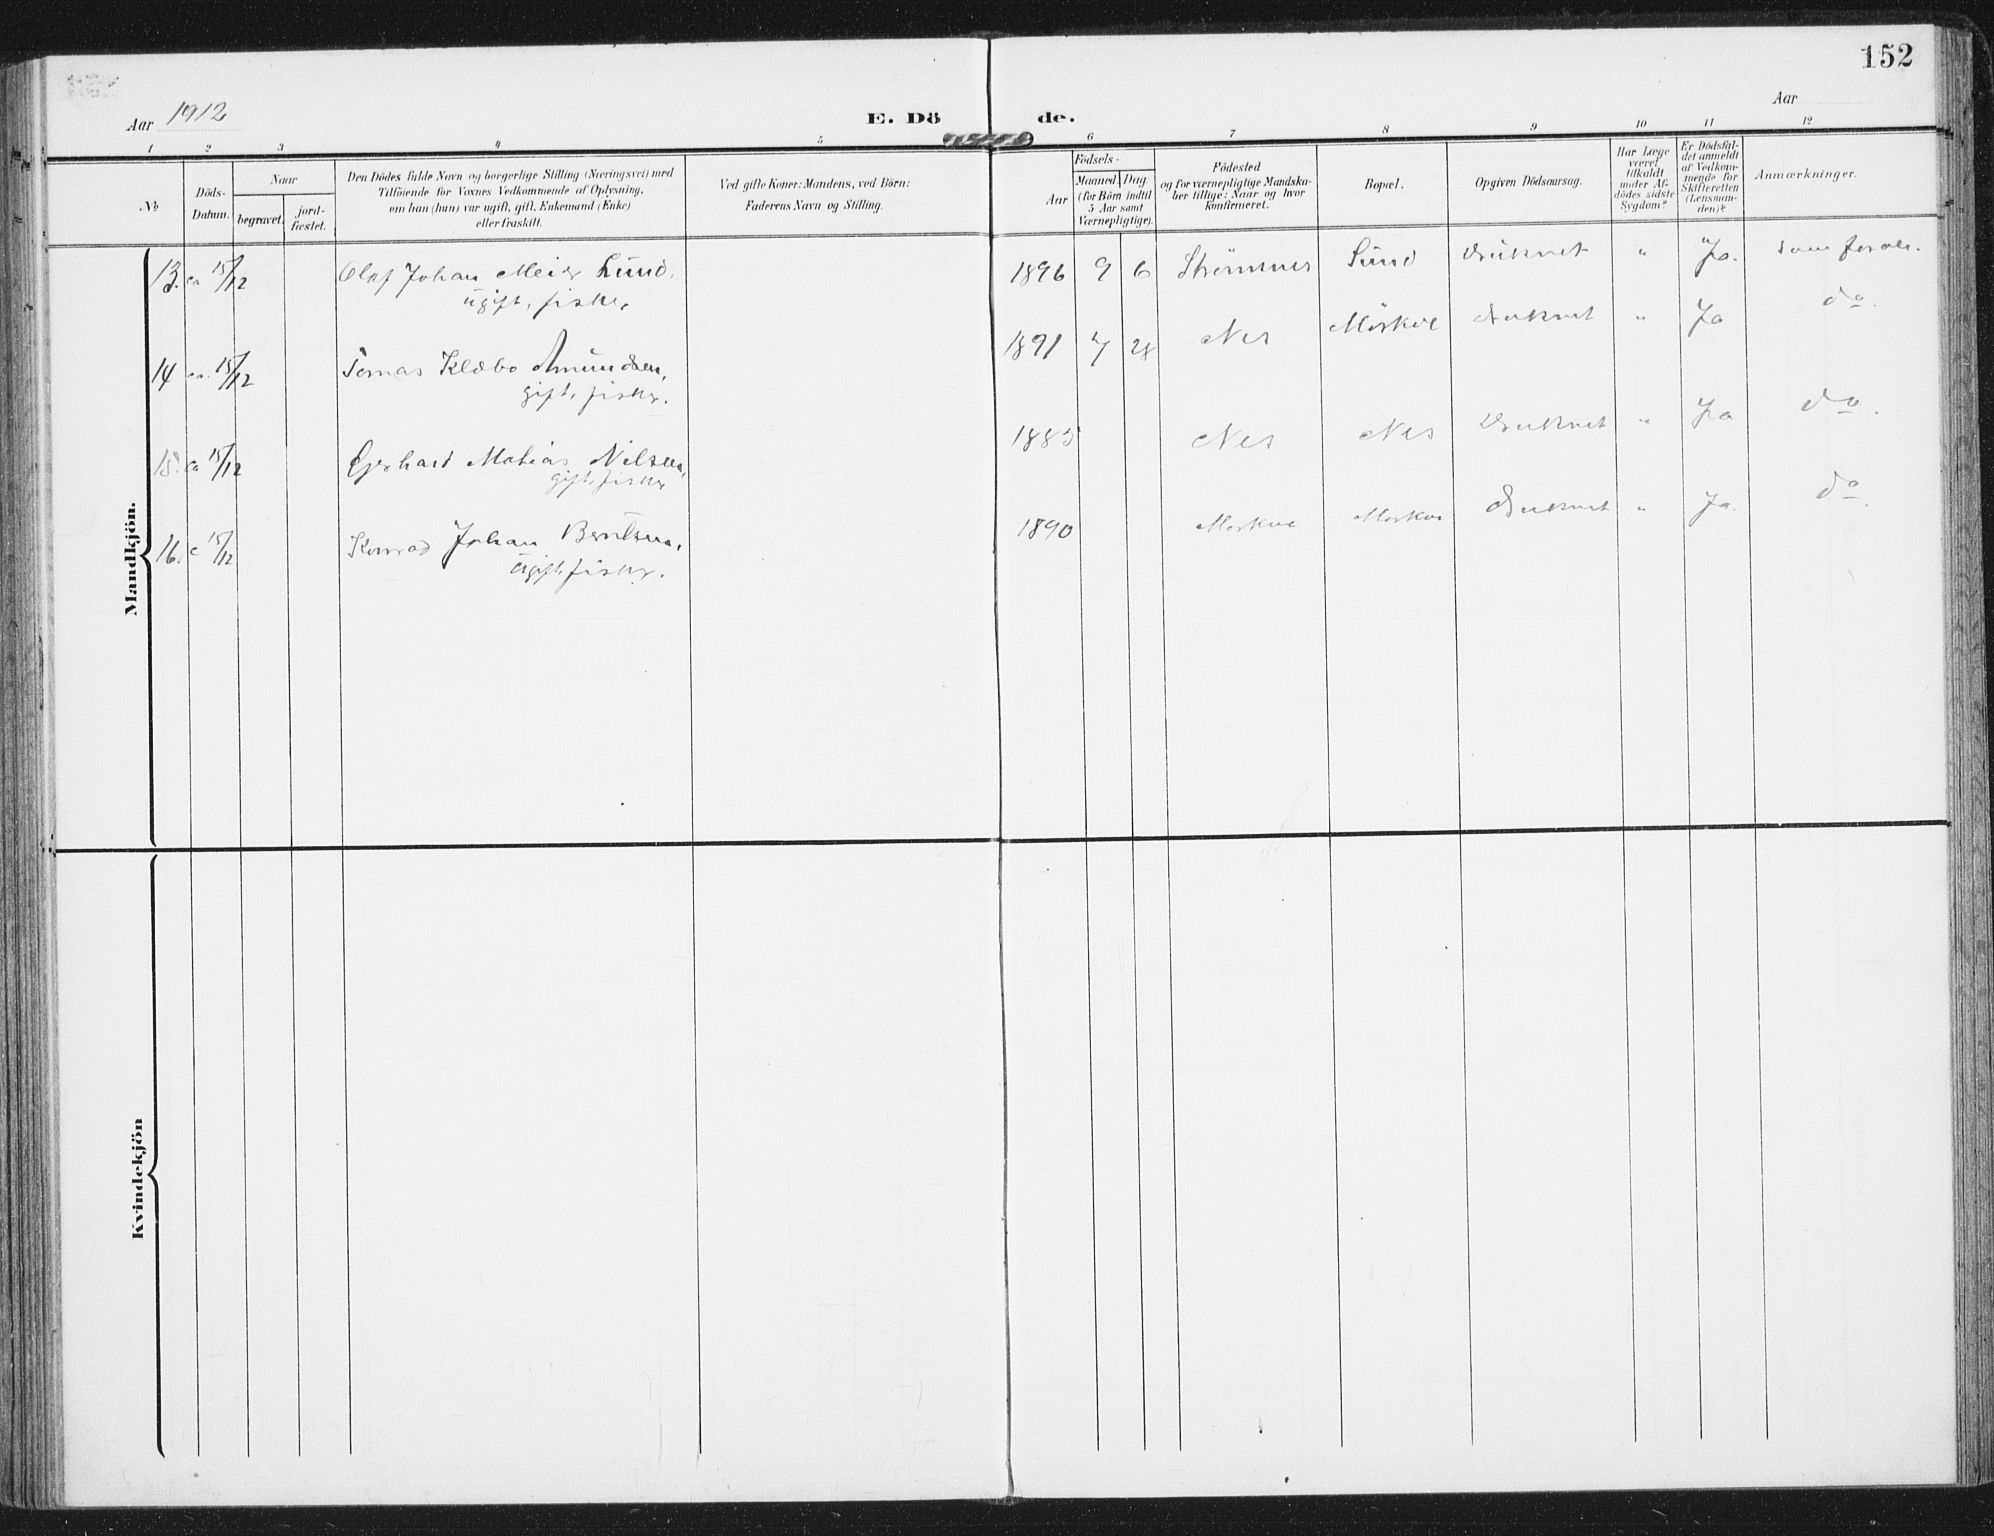 152
Aar 1912
E. Dö
de.
Aar
1 2 3 4 5 6 7 8 9 10 11 12
№
Döds-
Datum.
Naar
begravet.
jord-
fæstet.
Den Dödes fulde Navn og borgerlige Stilling (Næringsvei) med
Tilföiende for Voxnes Vedkommende af Oplysning,
om han (hun) var ugift, gift, Enkemand (Enke)
eller fraskilt.
Ved gifte Koner: Mandens, ved Börn:
Faderens Navn og Stilling.
Födsels-
Aar
Maaned Dag
(for Börn indtil
5 Aar samt
Værnepligtige).
Födested
og for værnepligtige Mandska-
ber tillige: Naar og hvor
konfirmeret.
Bopæl.
Opgiven Dödsaarsag.
Har Læge
været
tilkaldt
under Af-
dödes sidste
Sygdom?
Er Dödsfal-
det anmeldt
af Vedkom-
mende for
Skifteretten
(Lensman-
den)?
Anmærkninger.
Mandkjön.
13. ca 15/12 Olaf Johan Meier Lund, 1896 9 6 Strömnes Sund Druknet " Ja. Som foran.
ugift, fisker
14 ca. 15/12 Tomas Klæbo Amundsen, 1891 7 28 Nes Mörkve Druknet " Ja do.
gift, fisker.
15. ca 15/12 Gerhard Matias Nilsen, 1885 Nes Nes Druknet " Ja do.
gift, fisker
16. c 15/12 Konrad Johan Berntsen, 1890 Morkve Morkve Druknet " Ja. do.
ugift, fisker.
Kvindekjön